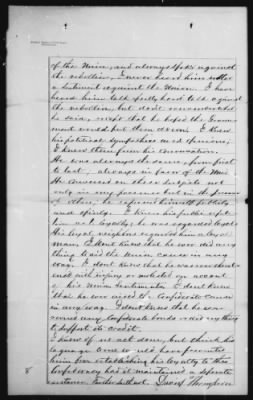 of the Union, and always spoke against
the rebellion. I never heard him utter
a sentiment against the Union. I have
heard him talk pretty hard talk against
the rebellion, but don't remember what
he said, except that he hoped the Govern-
ment would put them down. I knew
his political sympathies and opinions;
I knew them from his conversation.
He was always the same, from first
to last, always in favor of the Union.
He conversed on these subjects not
only in my presence but in the presence
of others, he expressed himself publicly
and openly. I knew his public reput-
as to loyalty; he was regarded loyal.
His loyal neighbors regarded him a loyal
man. I don't know that he ever did any
thing to aid the Union cause in any
way. I don't know that he was ever threat-
ened with injury or molested on account
of his Union sentiments. I don't know
that he ever aided the Confederate cause
in any way. I don't know that he ever
owned any Confederate bonds or did anything
to support its credit.
I know of no act done, but think his
language
him ever establishing his loyalty to the
Confederacy had it maintained a separate
existence. Further saith not. Thompson
8